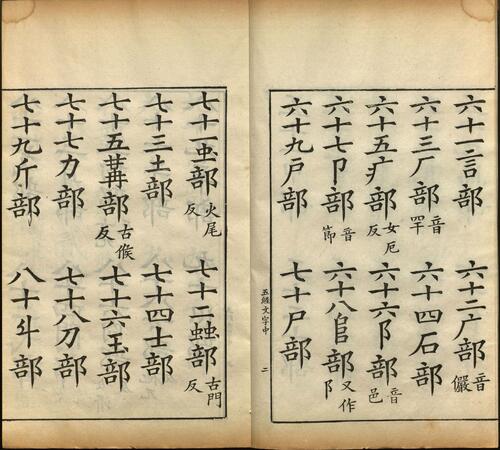 六十一言部　六十二广部音儼
六十三厂部音罕　六十四石部
六十五疒部女厄反　六十六阝部音邑
六十七卩部音節　六十八𨸏部又作阝
六十九戶部　七十尸部
五經文字中　二
七十一虫部火尾反　七十二䖵部古門反
七十三土部　七十四士部
七十五冓部古候反　七十六玉部
七十七力部　七十八刀部
七十九斤部　八十斗部